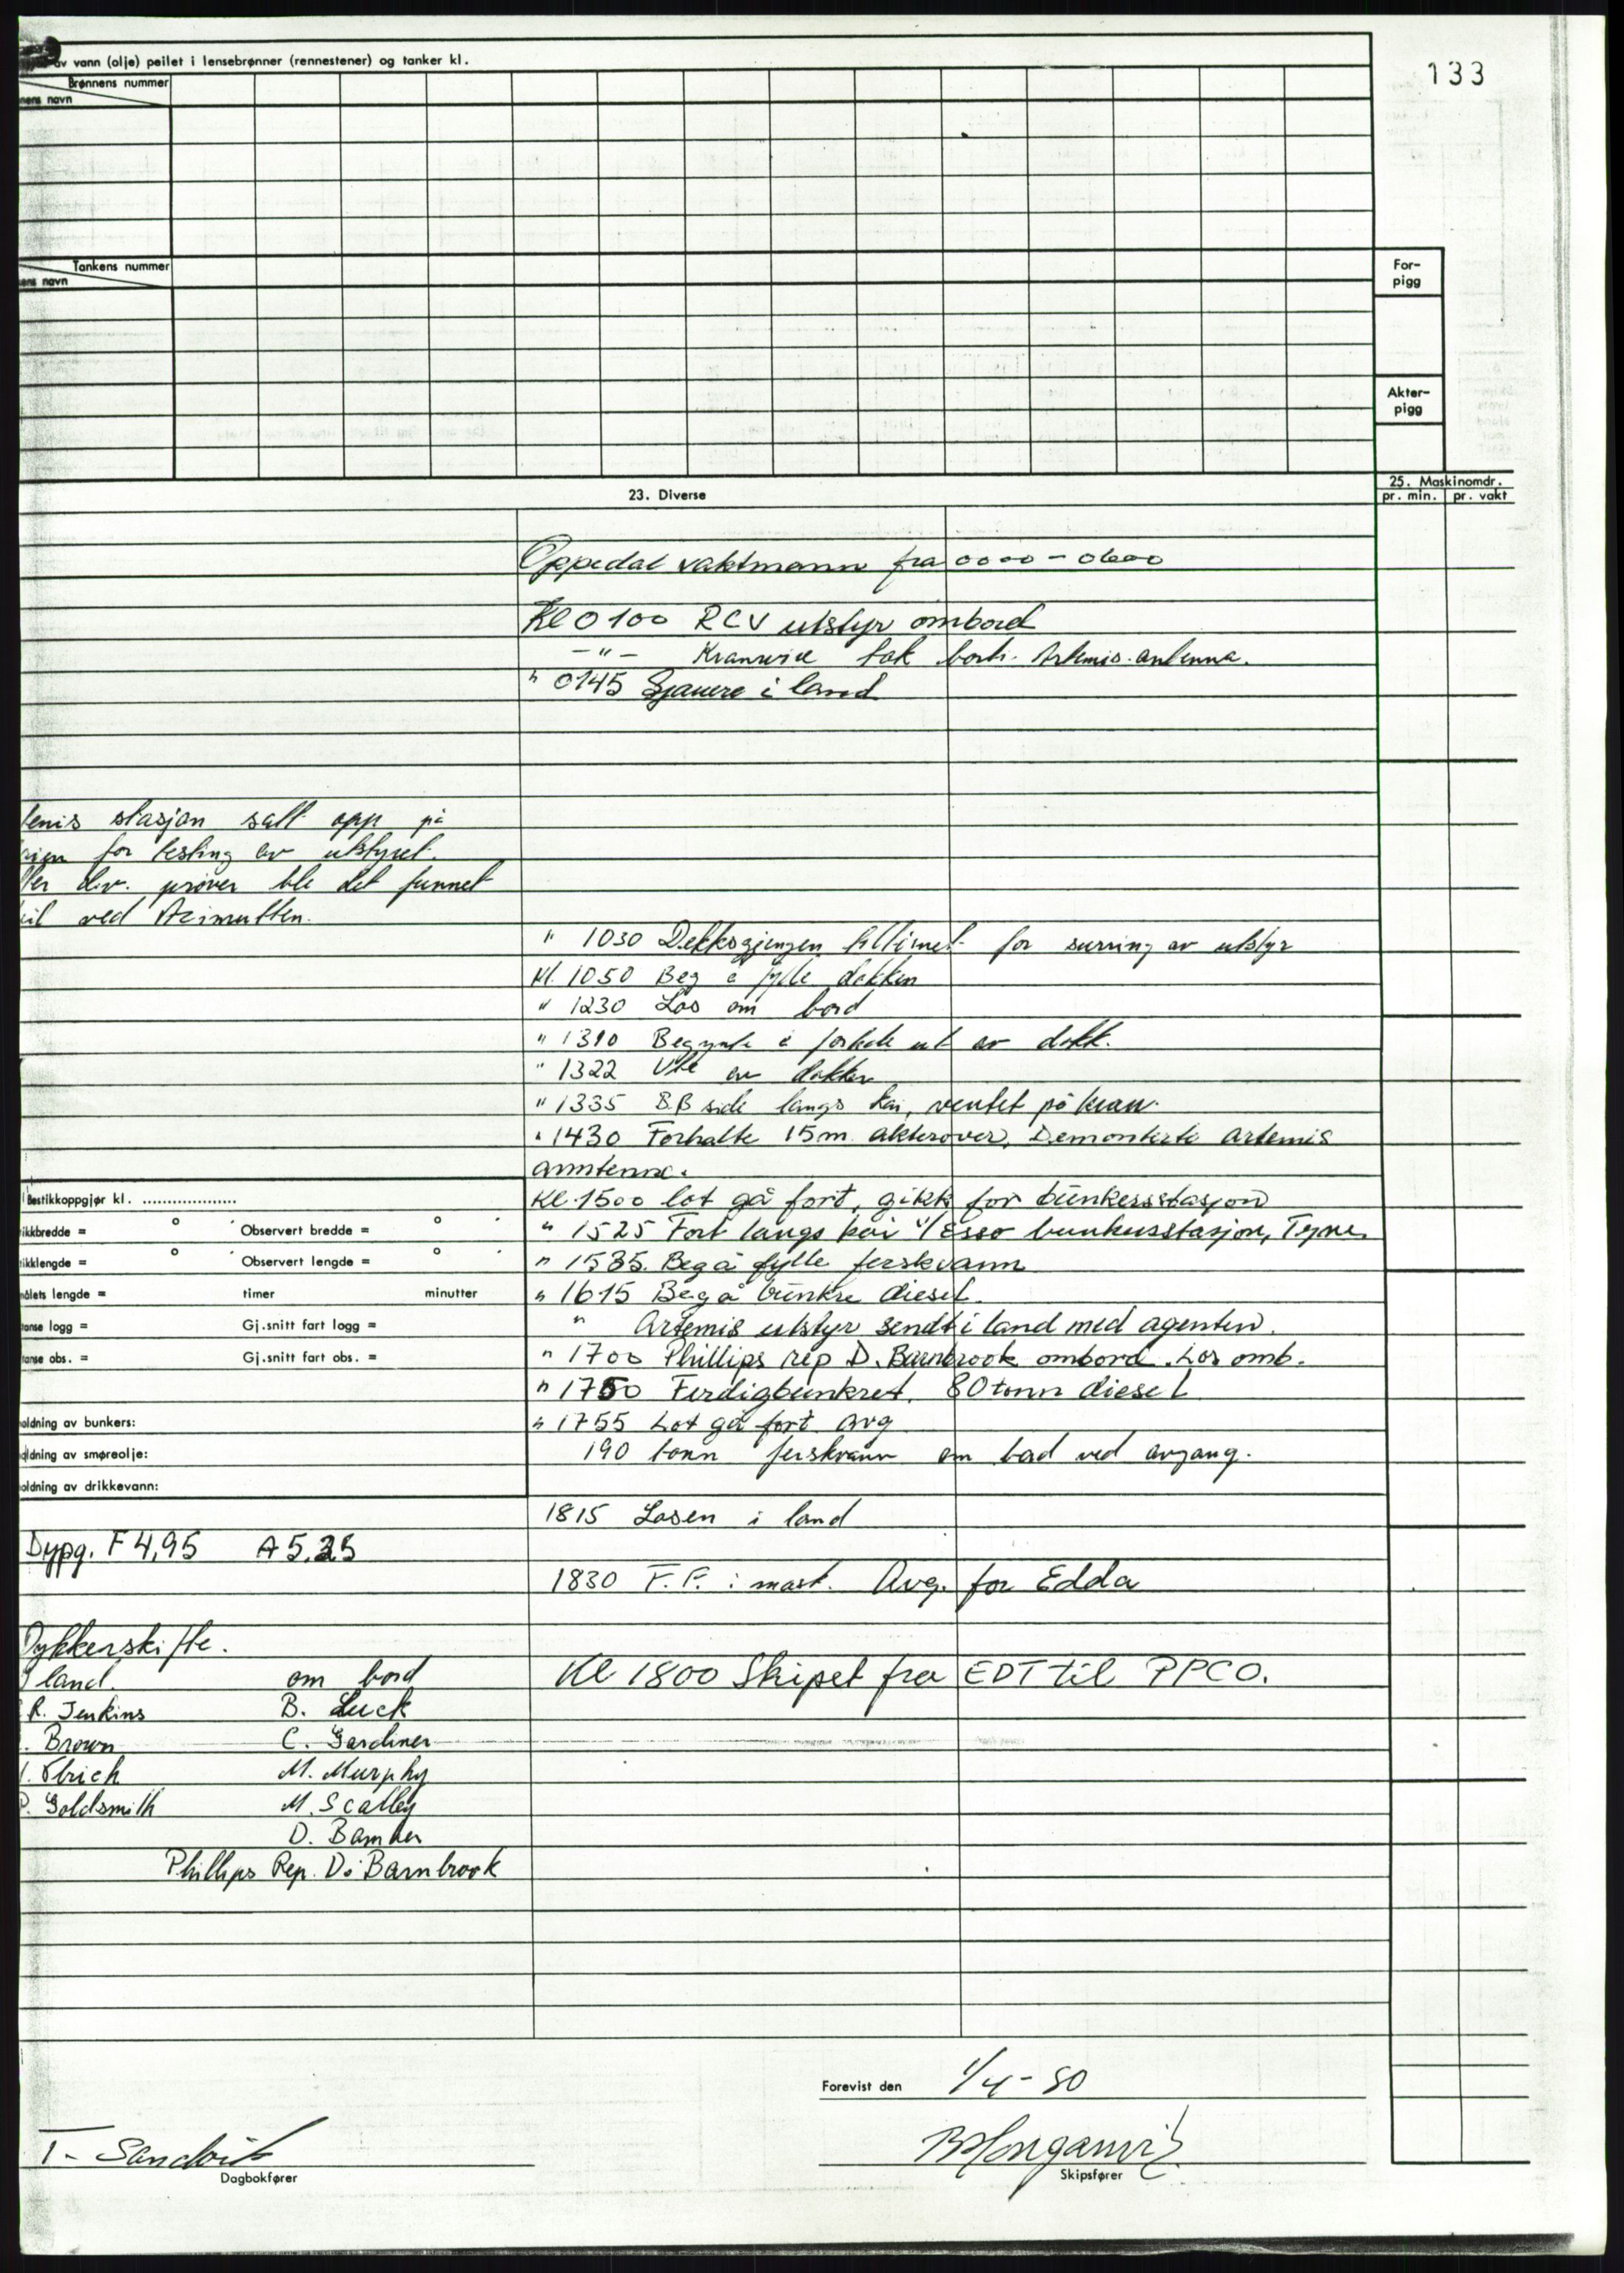 133
av vann (olje) peilet i lensebrønner (rennestener) og tanker kl.
Brønnens nummer
nens navn
Tankens nummer
ens navn
For-
pigg
Akter-
pigg
23. Diverse
25. Maskinomdr.
pr. min. pr. vakt
Oppedal vaktmann fra 0000 - 0600
Kl 0100 RCV utstyr ombord
- " - tok bort. Artemis-antenna.
" 0145 Sjauere i land
temis stasjon satt opp på
for testing av utstyret.
ter div. prøver ble det funnet
eil ved Azimutten.
" 1030 Dekksgjengen tilkimet for surring av utstyr
Kl. 1050 Beg å fylle dokken
" 1230 Los om bord
" 1310 Begynte å forhale ut av dokk.
" 1322 Ute av dokken
" 1335 BB side langs kai, ventet på kran.
" 1430 Forhalte 15m akterover, Demonterte artemis
anntenne.
Kl 1500 lot gå fort, gikk for bunkersstasjon
" 1525 Fort langs kai v/ Esso bunkersstasjon, Tyne.
" 1535. Beg å fylle ferskvann
" 1615 Beg å bunkre diesel.
" Artemis utstyr sendt i land med agenten.
" 1700 Phillips rep D. Barnbrook ombord. Los omb.
" 1750 Ferdigbunkret. 80 tonn diesel
" 1755 Lot gå fort avg
190 tonn ferskvann om bord ved avgang.
Bestikkoppgjør kl. ...................
ikkbredde = ° ′ Observert bredde = ° ′
ikklengde = ° ′ Observert lengde = ° ′
målets lengde = timer minutter
anse logg = Gj.snitt fart logg =
anse obs. = Gj.snitt fart obs. =
oldning av bunkers:
oldning av smøreolje:
oldning av drikkevann:
1815 Losen i land
Dypg. F 4,95 A 5,25
1830 F.F. i mask. Avg. for Edda
Dykkerskifte.
I land. om bord
Kl 1800 Skipet fra EDT til PPCO.
R. Jenkins B. Luck
. Brown C. Gardiner
. Ulrich M. Murphy
P. Goldsmith M. Scalley
D. Bamber
Phillips Rep. D. Barnbrook
Forevist den 1/4-80
T. Sandvik
Dagbokfører
Skipsfører